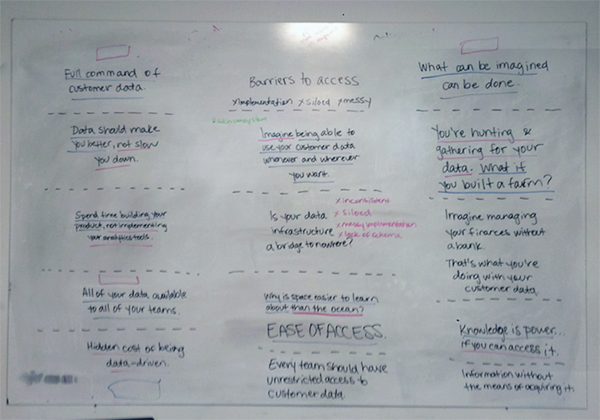 Full command of
customer data.
Data should make
you better, not slow
you down.
Spend time building your
product, not implementing
your analytics tools.
All of your data available
to all of your teams.
Hidden cost of being
data-driven.
Barriers to access
x implementation x siloed x messy
Imagine being able to
use your customer data
whenever and wherever
you want.
Is your data
infrastructure
a bridge to nowhere?
x inconsistent
x siloed
x messy implementation
x lack of schema
Why is space easier to learn
about than the ocean?
EASE OF ACCESS.
Every team should have
unrestricted access to
customer data.
What can be imagined
can be done.
You're hunting &
gathering for your
data. What if
you built a farm?
Imagine managing
your finances without
a bank.
That's what you're
doing with your
customer data.
Knowledge is power...
if you can access it.
Information without
the means of acquiring it.